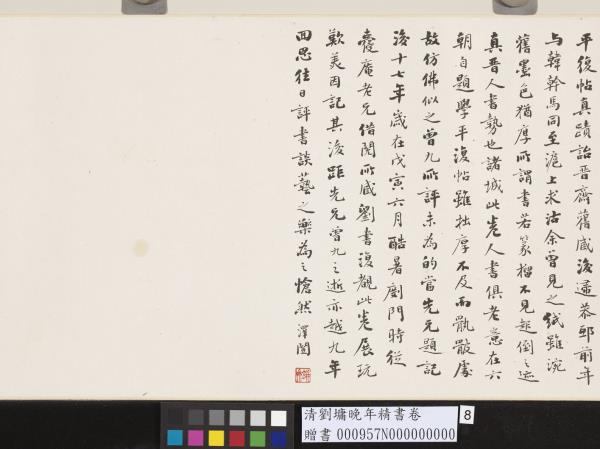 平復帖真蹟詒晉齋舊藏後遞恭邸前年
与韓幹馬同至滬上求沽余曾見之紙雖渝
舊墨色猶厚所謂書若篆榴不見起倒之迹
真晉人書勢也諸城此卷人書俱老意在六
朝自題學平復帖雖拙厚不及而骩骳處
故仿佛似之曾九所評未為的當先兄題記
後十七年歲在戊寅六月酷暑劇門時從
憂庵老兄借閱所藏劉書復觀此卷展玩
歎美因記其後距先兄曾九之逝亦越九年
回思往日評書談藝之樂為之愴然 澤闓
清劉墉晚年精書卷
贈書 000957N000000000
8